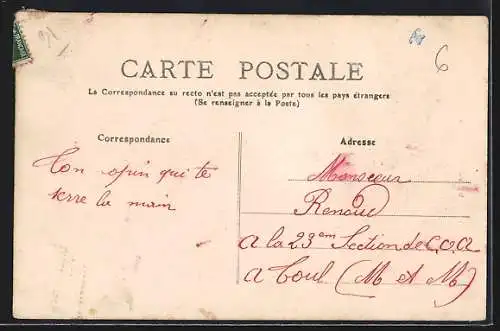 91
6
CARTE POSTALE
La Correspondance au recto n'est pas acceptée par tous les pays étrangers
(Se renseigner à la Poste)
Correspondance
Ton opin qui te
serre la main
Adresse
Monsieur
Renoud
a la 23em Section de C.O.A
a Toul (M et M)